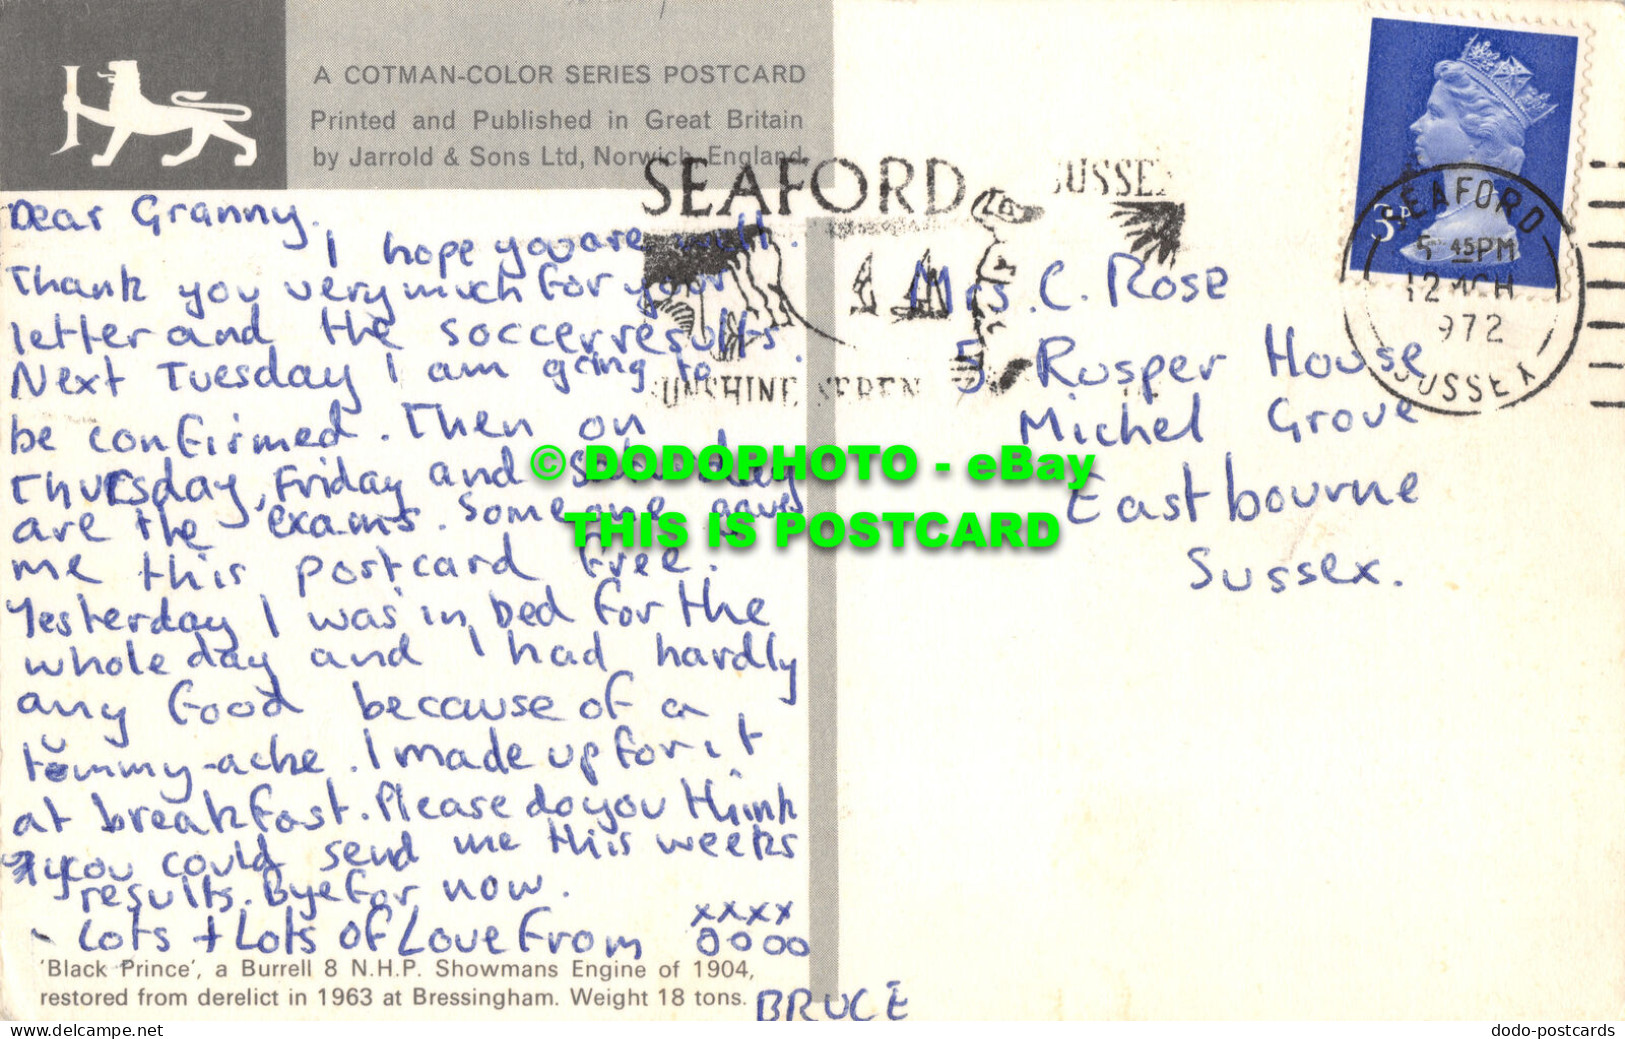 A COTMAN-COLOR SERIES POSTCARD
Printed and Published in Great Britain
by Jarrold & Sons Ltd, Norwich, England
SEAFORD SUSSEX
SUNSHINE SEREN
3P
SEAFORD
5 45PM
12 MCH
1972
SUSSEX
Dear Granny.
I hope you are well.
Thank you very much for your
letter and the soccer results.
Next Tuesday I am going to
be confirmed. Then on
Thursday, Friday and Saturday
are the exams. Someone gave
me this postcard free.
Yesterday I was in bed for the
whole day and I had hardly
any food because of a
tummy-ache. I made up for it
at breakfast. Please do you think
you could send me this weeks
results. Bye for now.
- Lots + Lots of Love from
xxxx
oooo
BRUCE
'Black Prince', a Burrell 8 N.H.P. Showmans Engine of 1904,
restored from derelict in 1963 at Bressingham. Weight 18 tons.
Mrs. C. Rose
5 Rusper House
Michel Grove
Eastbourne
Sussex.
© DODOPHOTO - eBay
THIS IS POSTCARD
delcampe.net
dodo-postcards